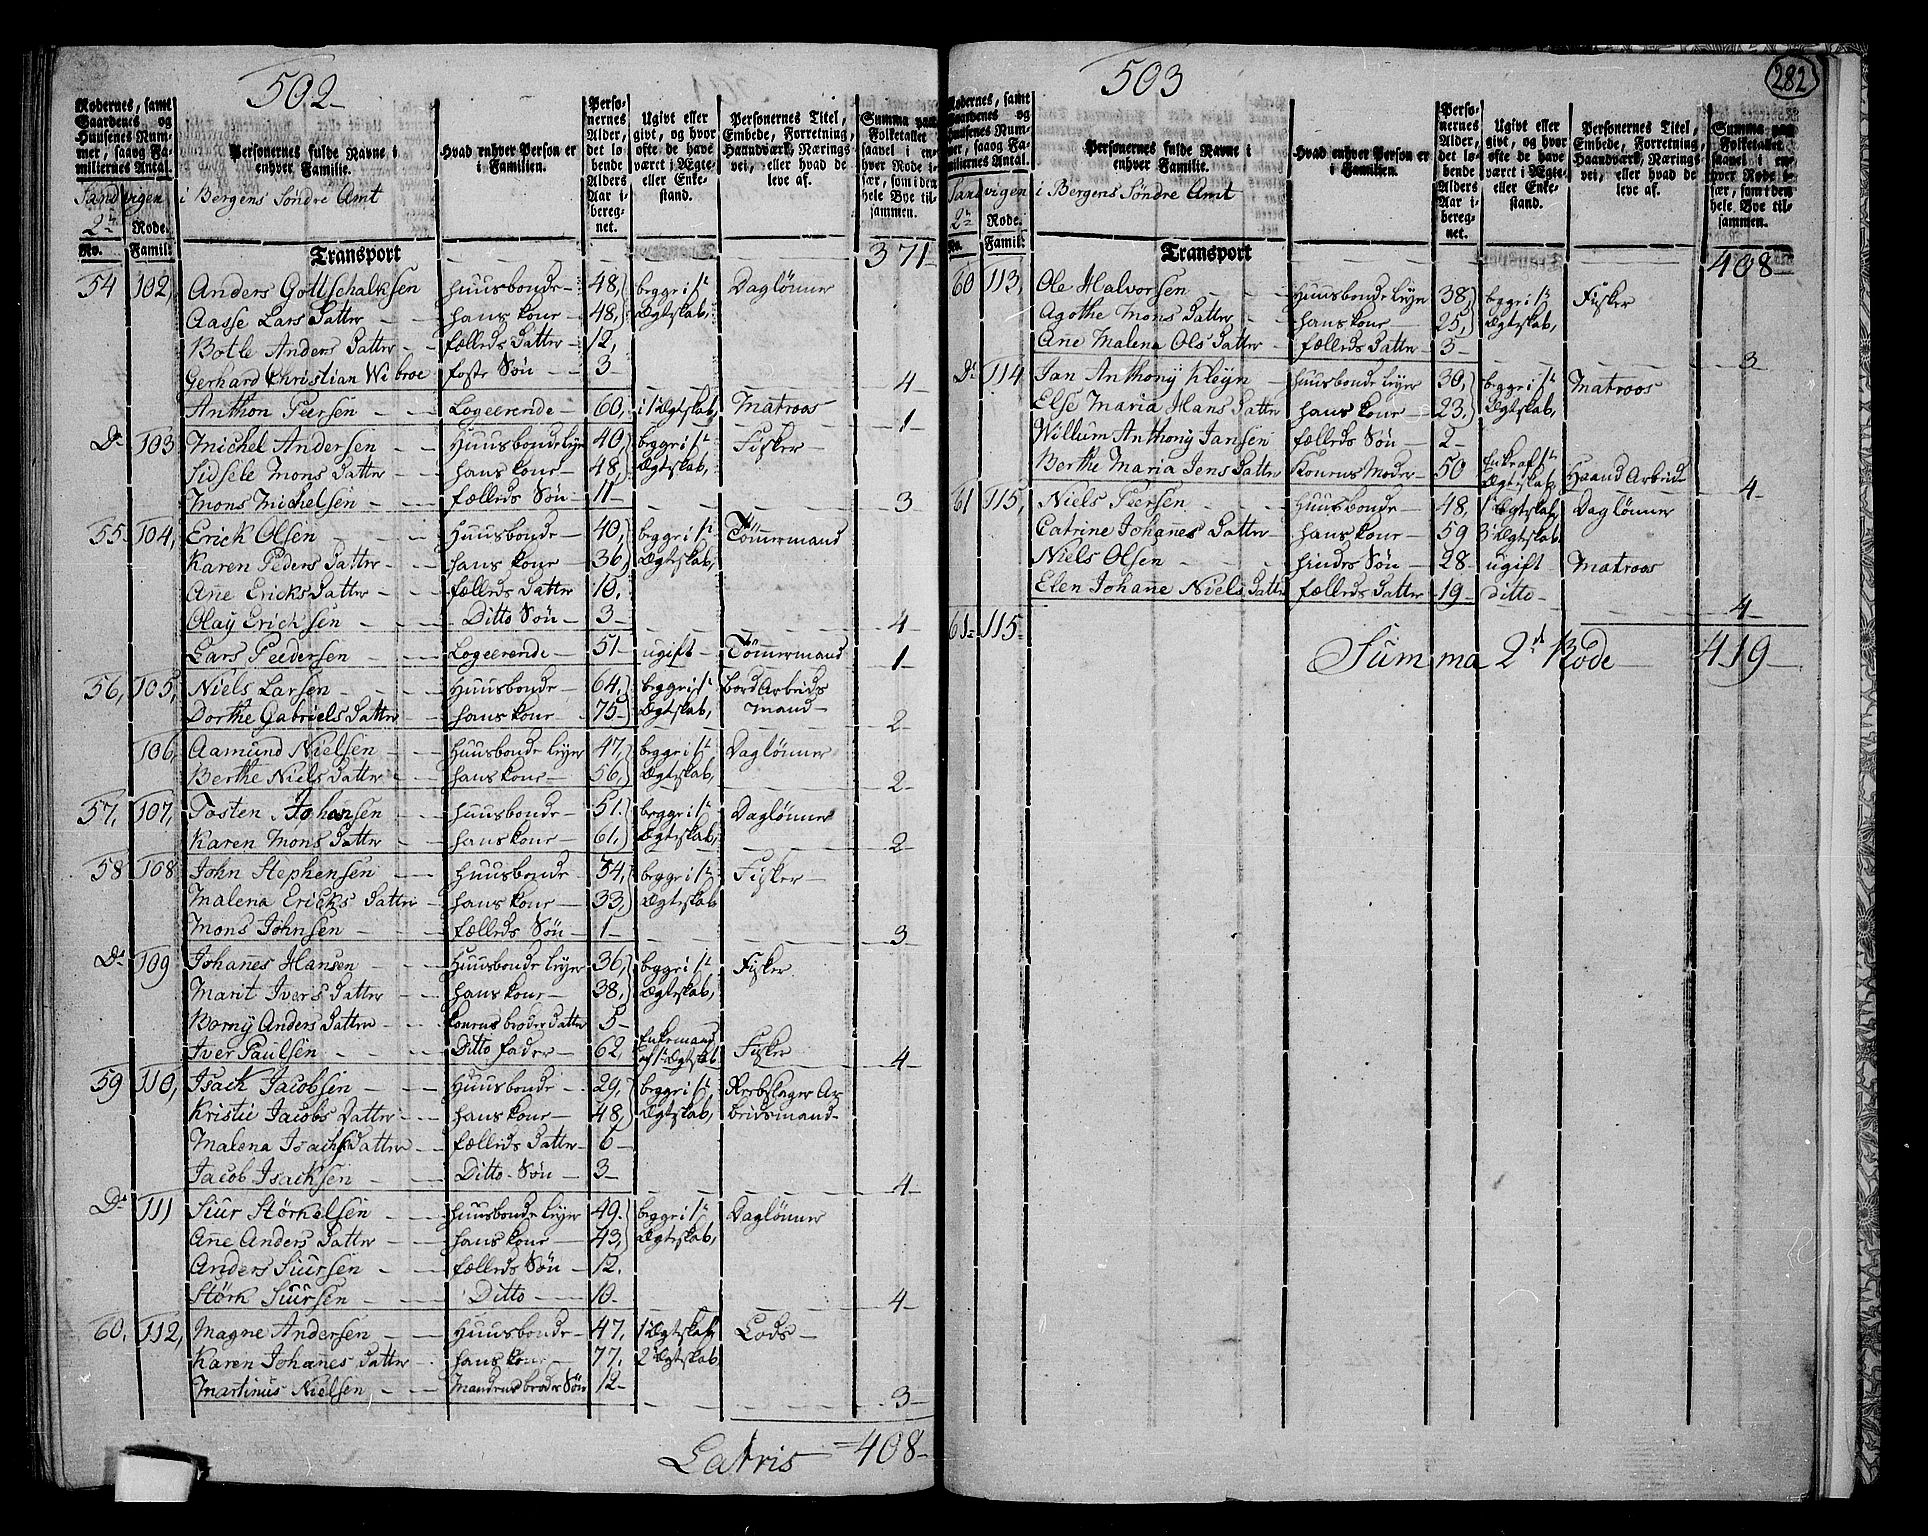 502
Rodernes, samt Gaardenes og Huusenes Nummer, saaog Familiernes Antal.
Personernes fulde Navne i enhver Familie.
Hvad enhver Person er i Familien.
Personernes Alder, det løbende Alders Aar iberegnet.
Ugivt eller givt, og hvor ofte de have været i Ægte- eller Enkestand.
Personernes Titel, Embede, Forretning, Haandværk, Næringsvei, eller hvad de leve af.
Summa paa Folketallet saavel i enhver Rode især, som i den hele Bye tilsammen.
Sandvigen i Bergens Søndre Amt
2n Rode.
No. Famil:
Transport 371
54 102, Anders Gottschalksen huusbonde 48, begge i 1te Daglønner
Aasse Lars Datter hans kone 48, Ægteskab,
Botle Anders Datter fælleds Datter 12,
Gerhard Christian Wibroe foste Søn 3 4
Anthon Peersen Logeerende 60, i 1te Ægteskab, Matroos 1
Do 103 Michel Andersen huusbonde leyer 40, begge i 1te Fisker
Sidsele Mons Datter hans kone 48, Ægteskab,
Mons Michelsen fælleds Søn 11 3
55 104, Erick Olsen huusbonde 40, begge i 1te Tømmermand
Karen Peders Datter hans kone 36, Ægteskab,
Ane Ericks Datter fælleds Datter 10,
Olay Ericksen Ditto Søn 3 4
Lars Peedersen Logeerende 51 ugift Tømmermand 1
56, 105, Niels Larsen huusbonde 64, begge i 1te bord Arbeids
Dorthe Gabriels Datter hans kone 75 Ægteskab, mand 2
106, Aamund Nielsen huusbonde leyer 47, begge i 1te Daglønner
Berthe Niels Datter hans kone 56, Ægteskab, 2
57, 107, Tosten Johansen huusbonde 51. begge i 1te Daglønner
Karen Mons Datter hans kone 61, Ægteskab, 2
58 108 John Stephensen huusbonde 34, begge i 1te Fisker
Malena Ericks Datter hans kone 33, Ægteskab
Mons Johnsen fælleds Søn 1 3
Do 109 Johanes Hansen huusbonde leyer 36, begge i 1te Fisker
Marit Ivers Datter hans kone 38, Ægteskab,
Borny Anders Datter konens broder datter 5
Iver Paulsen Ditto fader 62, Enkemand af 1te Ægteskab Fisker 4
59 110, Isack Jacobsen huusbonde 29, begge i 1te Reebslager Ar
Kristie Jacobs Datter hans kone 48, Ægteskab, beidsmand
Malena Isachs Datter fælleds Datter 6
Jacob Isacksen Ditto Søn 3 4
Do 111 Siur Størkelsen huusbonde leyer 49. begge i 1te Daglønner
Ane Anders Datter hans kone 43, Ægteskab,
Anders Siursen fælleds Søn 12.
Størk Siursen Ditto 10 4
60, 112, Magne Andersen huusbonde 47, 1te Ægteskab, Lods
Karen Johanes Datter hans kone 77. 2 Ægteskab
Martinus Nielsen Mandens broder Søn 12 3
Latris 408
503
282
Rodernes, samt Gaardenes og Huusenes Nummer, saaog Familiernes Antal.
Personernes fulde Navne i enhver Familie.
Hvad enhver Person er i Familien.
Personernes Alder, det løbende Alders Aar iberegnet.
Ugivt eller givt, og hvor ofte de have været i Ægte- eller Enkestand.
Personernes Titel, Embede, Forretning, Haandværk, Næringsvei, eller hvad de leve af.
Summa paa Folketallet saavel i enhver Rode især, som i den hele Bye tilsammen.
Sandvigen i Bergens Søndre Amt
2n Rode.
No. Famil:
Transport 408
60 113, Ole Halvorsen huusbonde leyer 38, begge i 1te Fisker
Agothe Mons Datter hans kone 25, Ægteskab,
Ane Malena Ols Datter fælleds Datter 3 3
Do 114 Jan Anthony Kleyn huusbonde leyer 30, begge i 1te Matroos
Else Maria Hans Datter hans kone 23, Ægteskab,
Willum Anthony Jansen fælleds Søn 2
Berthe Maria Jens Datter konens Moder 50 Enke af 1te Ægteskab Haand Arbeid 4
61 115, Niels Peersen huusbonde 48, 1 Ægteskab Daglønner
Catrine Johanes Datter hans kone 59 3 Ægteskab
Niels Olsen hendes Søn 28 ugift Matroos
Elen Johane Niels Datter fælleds Datter 19 ditto 4
61 115
Summa 2d Rode 419